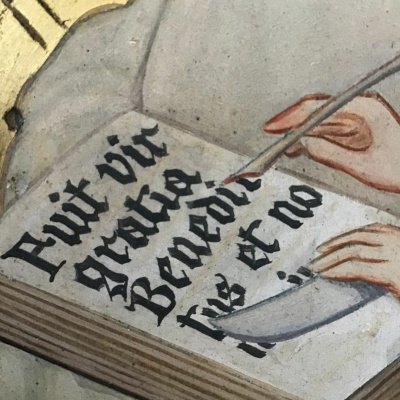 Fuit vir
gratia
Benedic
tus et no